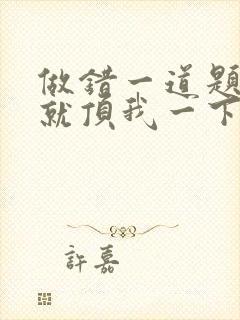 做錯一道題
就頂我一下
許嘉